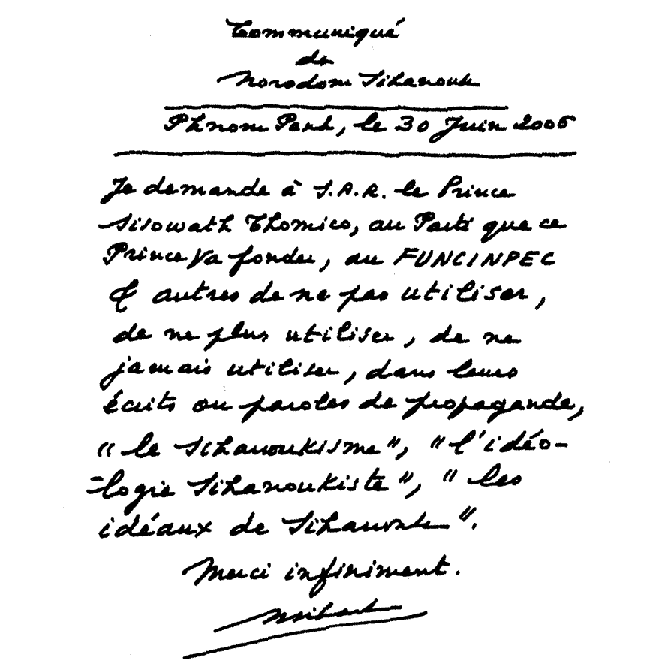 Communiqué
de
Norodom Sihanouk
Phnom Penh, le 30 Juin 2006
Je demande à S.A.R. le Prince
Sisowath Thomico, au Parti que ce
Prince va fonder, au FUNCINPEC
& autres de ne pas utiliser,
de ne plus utiliser, de ne
jamais utiliser, dans leurs
écrits ou paroles de propagande,
"le Sihanoukisme", "l'idéo-
-logie Sihanoukiste", "les
idéaux de Sihanouk".
Merci infiniment.